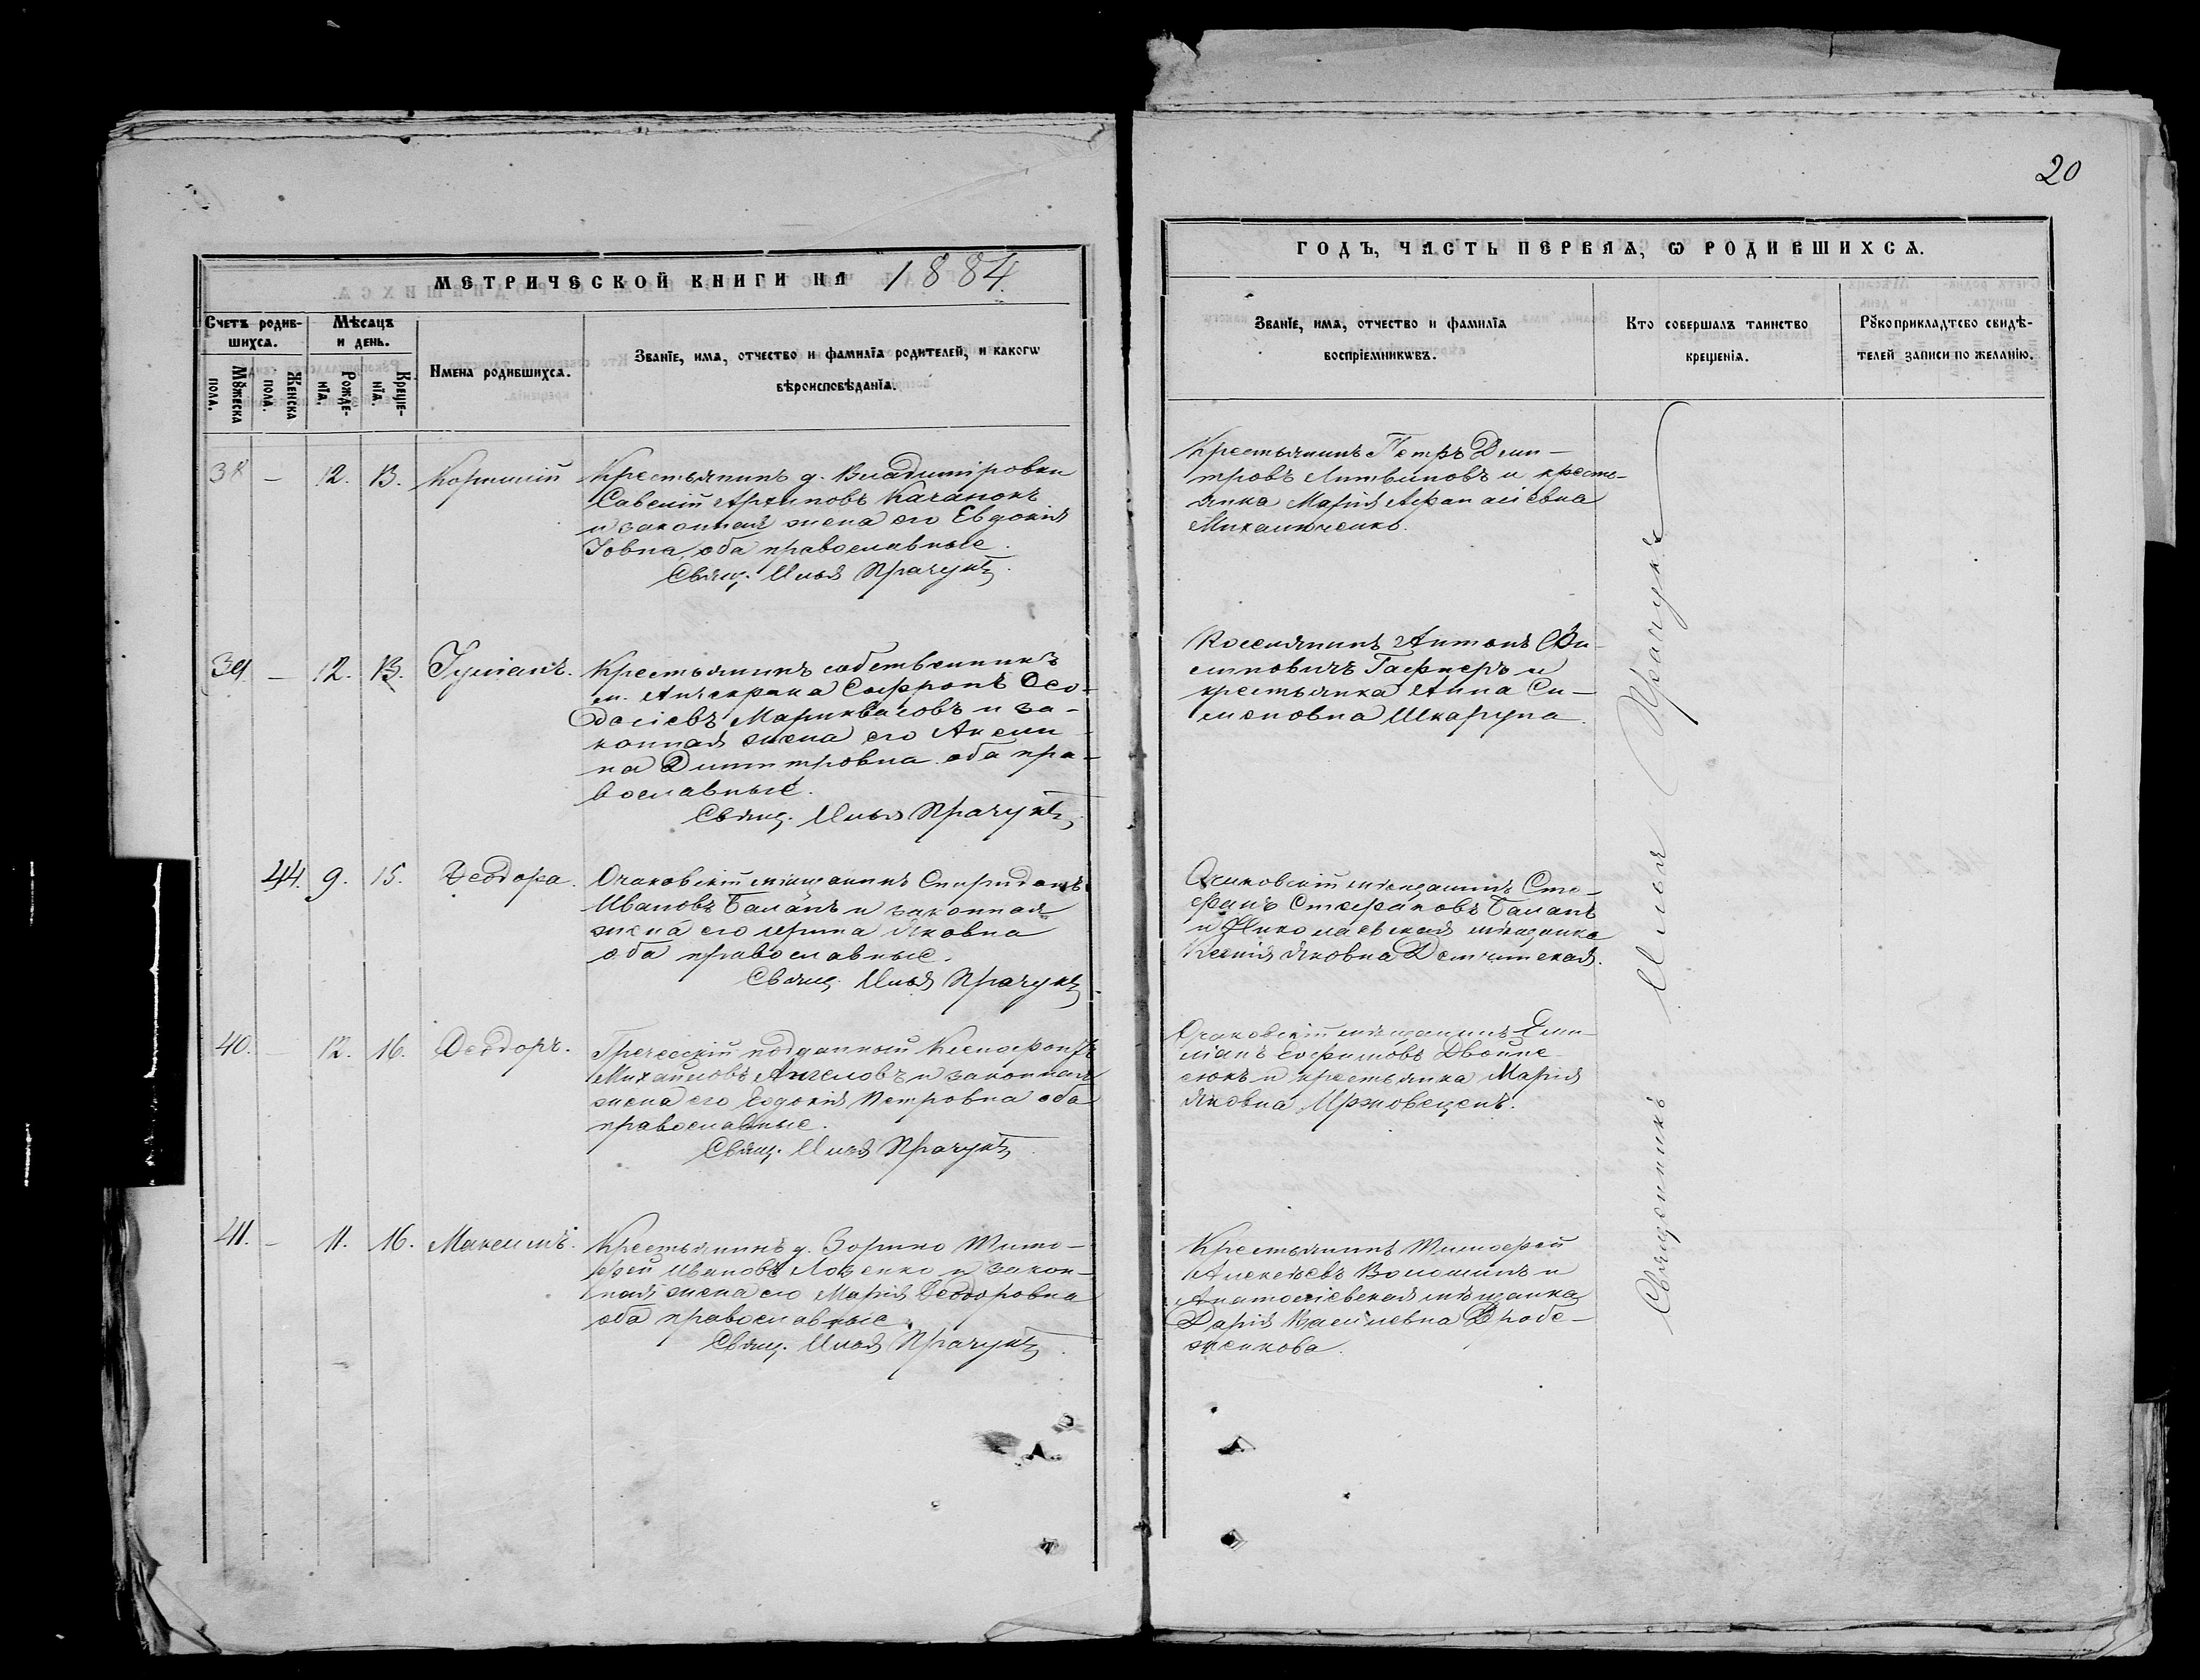 20
МЕТРИЧЕСКОЙ КНИГИ НА 1884.
Счетъ родив-
шихся.
Мѣсяцъ
и день.
Имена родившихся.
Званїе, имя, отчество и фамилїя родителей, и какогѡ
вѣроисповѣданїя.
Мꙋжеска
пола.
Женска
пола.
Рожде-
нїя.
Креще-
нїя.
38 — 12. 13. Корнилій
Крестьянинъ д. Владиміровки
Савелій Архиповъ Качанокъ
и законная жена его Евдокія
Іовна, оба православные.
Свящ. Илья Прачукъ.
39. — 12. 13. Іуліанъ.
Крестьянинъ собственникъ
м. Анчекрака Софронъ Ѳео-
досіевъ Мариквасовъ и за-
конная жена его Аксин-
на Димитровна оба пра-
вославные.
Свящ. Илья Прачукъ
44. 9. 15. Ѳеодора.
Очаковскій мѣщанинъ Спиридонъ
Ивановъ Баланъ и законная
жена его Ирина Яковна
оба православные.
Свящ. Илья Прачукъ
40. — 12. 16. Ѳеодоръ.
Греческій подданный Ксенофонтъ
Михайловъ Ангеловъ и законная
жена его Евдокія Петровна оба
православные.
Свящ. Илья Прачукъ
41. — 11. 16. Максимъ.
Крестьянинъ д. Зорино Тимо-
фей Ивановъ Лозенко и закон-
ная жена его Марія Ѳеодоровна
оба православные.
Свящ. Илья Прачукъ.
ГОДЪ, ЧАСТЬ ПЕРВАЯ, Ѡ РОДИВШИХСЯ.
Званїе, имя, отчество и фамилїя
воспрїемникѡвъ.
Кто совершалъ таинство
крещенїя.
Рꙋкоприкладтсво свидѣ-
телей записи по желанїю.
Крестьянинъ Петръ Дими-
тровъ Литвиновъ и кресть-
янка Марія Афанасіевна
Михалюченко.
Поселянинъ Антонъ Фи-
липовичъ Гафнеръ и
крестьянка Анна Си-
меновна Шкарупа.
Очаковскій мѣщанинъ Сте-
фанъ Стефановъ Баланъ
и Николаевская мѣщанка
Ксенія Яковна Демчинская.
Очаковскій мѣщанинъ Еми-
ліанъ Евфимовъ Двойне-
сюкъ и крестьянка Марія
Яковна Иржовецень.
Крестьянинъ Тимофей
Алексѣевъ Волошинъ и
Анатоліевская мѣщанка
Дарія Васильевна Дробе-
женкова.
Священникъ Илья Прачукъ